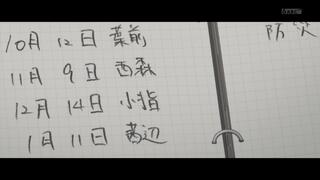 10月12日 葉前
11月9日 西森
12月14日 小指
1月11日 茜辺
防災